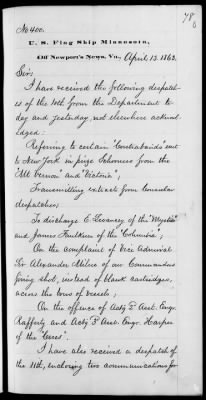 78
No 400.
U. S. Flag Ship Minnesota,
Off Newport's News, Va., April 13. 1863.
Sir:
I have received the following despatch-
es of the 10th from the Department to-
day and yesterday, not elsewhere acknowl-
edged:
Referring to certain "Contrabands" sent
to New York in prize Schooners from the
"Mt Vernon" and "Victoria";
Transmitting extracts from Consular
despatches;
To discharge E. of the "Mystic"
and James Faulkner of the "Columbia";
On the complaint of Vice Admiral
Sir Alexander Milne of our Commanders
firing shot, instead of blank cartridges,
across the bows of vessels;
On the offence of Actg 3d Asst. Engr.
Rafferty and Actg 3d Asst. Engr. Harper
of the "Ceres".
I have also received a despatch of
the 11th, enclosing two communications for